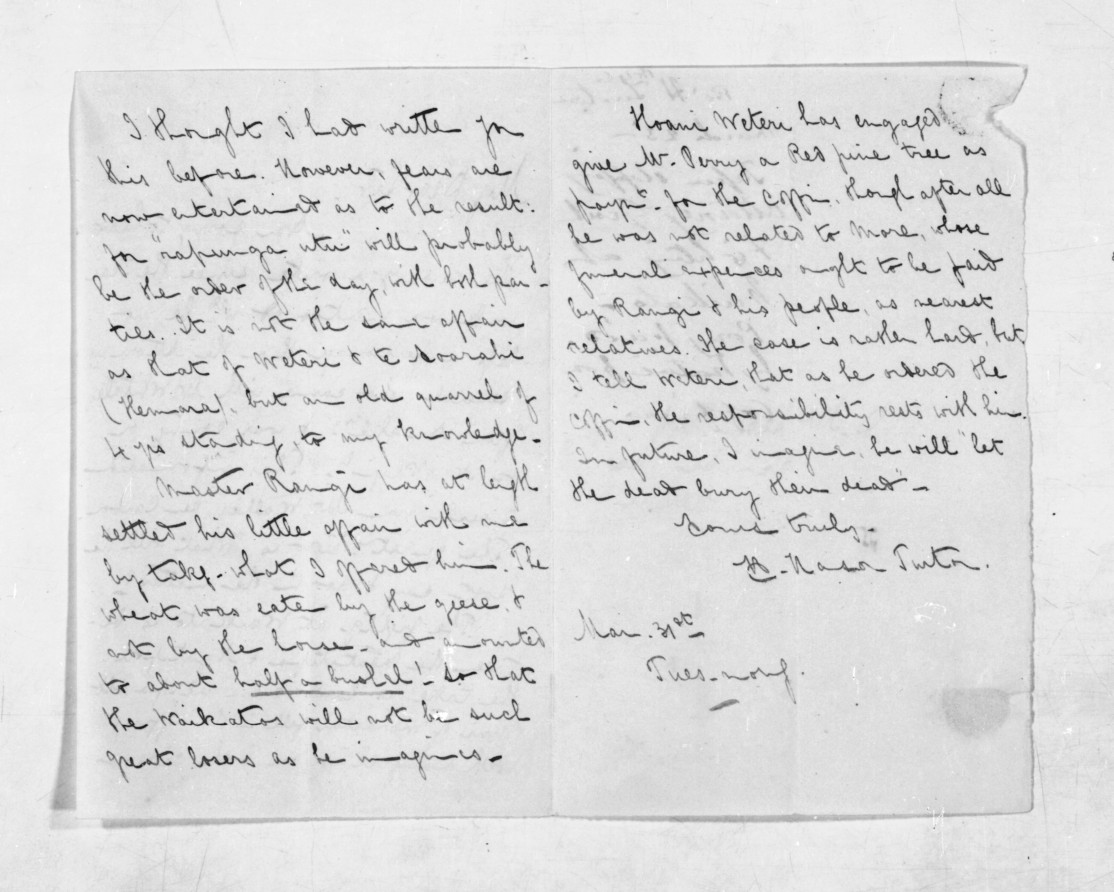 I thought I had written you
this before. However, fears are
now entertained as to the result:
for "rapunga utu" will probably
be the order of the day, with both par-
ties. It is not the same affair
as that of Weteri & te
(Hemara), but an old quarrel of
4 yrs standing, to my knowledge.
Master Rangi has at length
settled his little affair with me
by takg. what I offered him. The
wheat was eaten by the geese &
not by the horse - and amounted
to about half a bushel! So that
the Waikatos will not be such
great losers as he imagines -
Hoani Weteri has engaged
give Mr. Perry a Red pine tree as
paymt. for the Coffin, though after all
he was not related to More, whose
funeral expences ought to be paid
by Rangi & his people, as nearest
relatives. The case is rather hard, but
I tell Weteri that as he ordered the
coffin, the responsibility rests with him.
In future, I imagine, he will "let
the dead bury their dead" -
Yours truly -
H. Hanson Turton.
Mar. 31st -
Tues. morng.